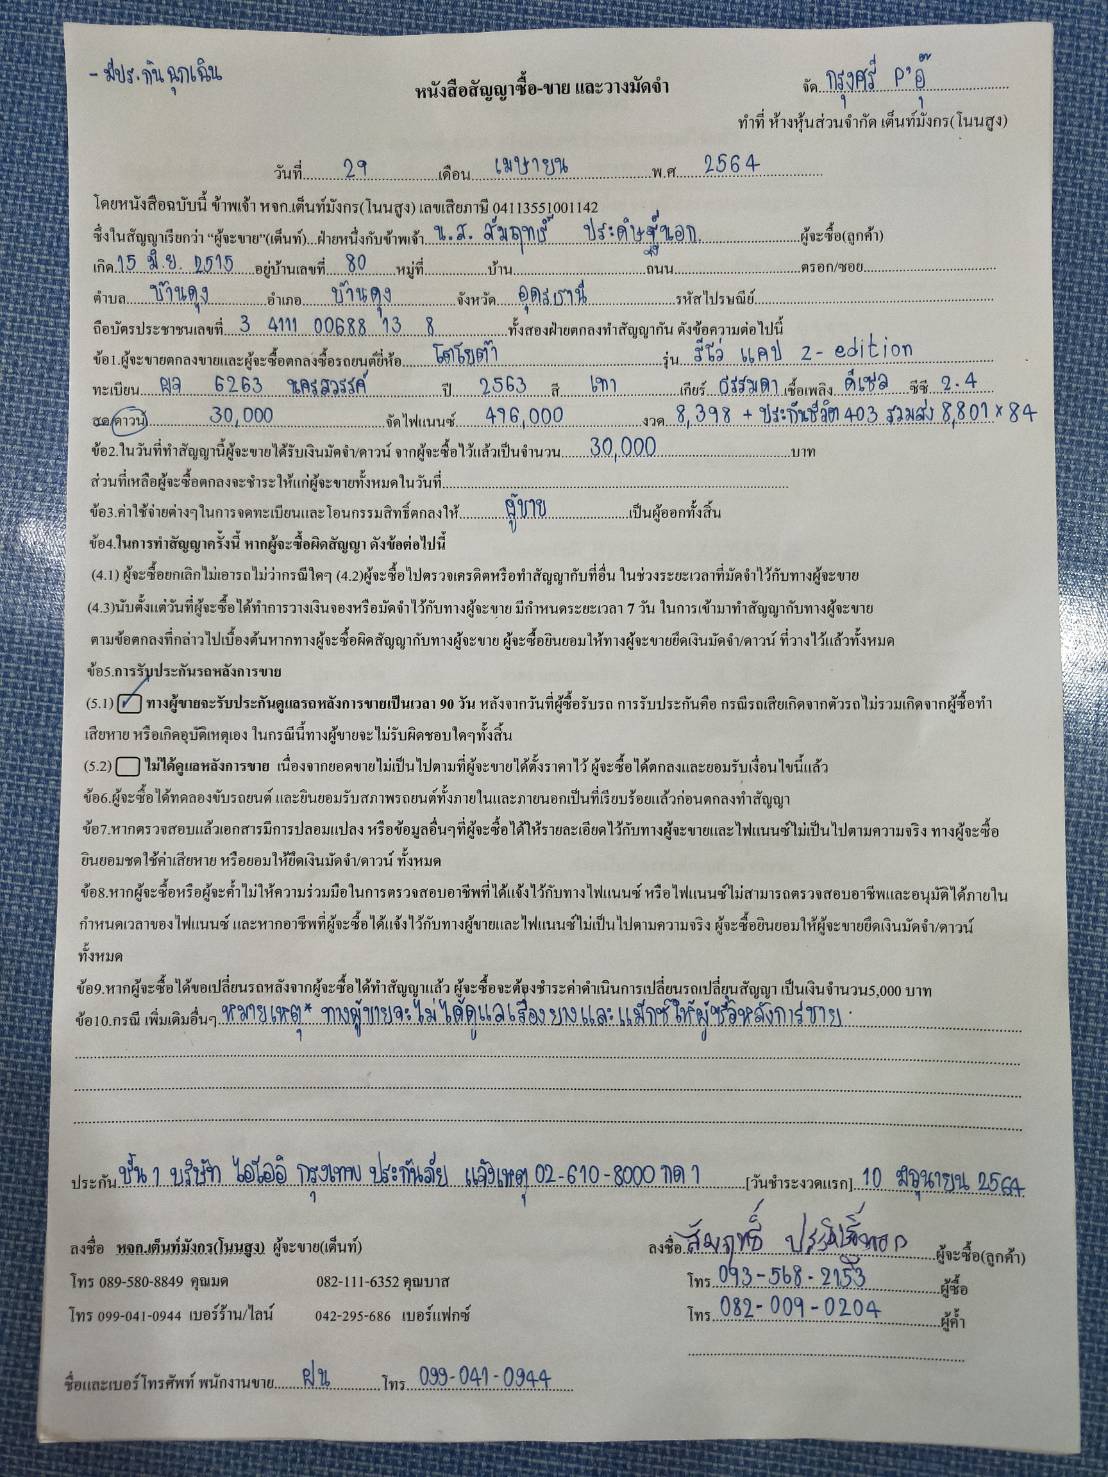 - มีประกันฉุกเฉิน
หนังสือสัญญาซื้อ-ขาย และวางมัดจำ
จัด กรุงศรี P'อุ๊
ทำที่ ห้างหุ้นส่วนจำกัด เต็นท์มังกร(โนนสูง)
วันที่ 29 เดือน เมษายน พ.ศ 2564
โดยหนังสือฉบับนี้ ข้าพเจ้า หจก.เต็นท์มังกร(โนนสูง) เลขเสียภาษี 04113551001142
ซึ่งในสัญญาเรียกว่า “ผู้จะขาย”(เต็นท์)...ฝ่ายหนึ่งกับข้าพเจ้า น.ส. สัมฤทธิ์ ประดิษฐ์นอก ผู้จะซื้อ(ลูกค้า)
เกิด 15 มิ.ย. 2515 อยู่บ้านเลขที่ 80 หมู่ที่ บ้าน ถนน ตรอก/ซอย
ตำบล บ้านดุง อำเภอ บ้านดุง จังหวัด อุดรธานี รหัสไปรษณีย์
ถือบัตรประชาชนเลขที่ 3 4111 00688 13 8 ทั้งสองฝ่ายตกลงทำสัญญากัน ดังข้อความต่อไปนี้
ข้อ1.ผู้จะขายตกลงขายและผู้จะซื้อตกลงซื้อรถยนต์ยี่ห้อ โตโยต้า รุ่น รีโว่ แคป z-edition
ทะเบียน ผจ 6263 นครสวรรค์ ปี 2563 สี เทา เกียร์ ธรรมดา เชื้อเพลิง ดีเซล ซีซี 2.4
สด/ดาวน์ 30,000 จัดไฟแนนซ์ 496,000 งวด 8,398 + ประกันชีวิต 403 รวมส่ง 8,801 x 84
ข้อ2.ในวันที่ทำสัญญานี้ผู้จะขายได้รับเงินมัดจำ/ดาวน์ จากผู้จะซื้อไว้แล้วเป็นจำนวน 30,000 บาท
ส่วนที่เหลือผู้จะซื้อตกลงจะชำระให้แก่ผู้จะขายทั้งหมดในวันที่
ข้อ3.ค่าใช้จ่ายต่างๆในการจดทะเบียนและโอนกรรมสิทธิ์ตกลงให้ ผู้ขาย เป็นผู้ออกทั้งสิ้น
ข้อ4.ในการทำสัญญาครั้งนี้ หากผู้จะซื้อผิดสัญญา ดังข้อต่อไปนี้
(4.1) ผู้จะซื้อยกเลิกไม่เอารถไม่ว่ากรณีใดๆ (4.2)ผู้จะซื้อไปตรวจเครดิตหรือทำสัญญากับที่อื่น ในช่วงระยะเวลาที่มัดจำไว้กับทางผู้จะขาย
(4.3)นับตั้งแต่วันที่ผู้จะซื้อได้ทำการวางเงินจองหรือมัดจำไว้กับทางผู้จะขาย มีกำหนดระยะเวลา 7 วัน ในการเข้ามาทำสัญญากับทางผู้จะขาย
ตามข้อตกลงที่กล่าวไปเบื้องต้นหากทางผู้จะซื้อผิดสัญญากับทางผู้จะขาย ผู้จะซื้อยินยอมให้ทางผู้จะขายยึดเงินมัดจำ/ดาวน์ ที่วางไว้แล้วทั้งหมด
ข้อ5.การรับประกันรถหลังการขาย
(5.1) ทางผู้ขายจะรับประกันดูแลรถหลังการขายเป็นเวลา 90 วัน หลังจากวันที่ผู้ซื้อรับรถ การรับประกันคือ กรณีรถเสียเกิดจากตัวรถไม่รวมเกิดจากผู้ซื้อทำ
เสียหาย หรือเกิดอุบัติเหตุเอง ในกรณีนี้ทางผู้ขายจะไม่รับผิดชอบใดๆทั้งสิ้น
(5.2) ไม่ได้ดูแลหลังการขาย เนื่องจากยอดขายไม่เป็นไปตามที่ผู้จะขายได้ตั้งราคาไว้ ผู้จะซื้อได้ตกลงและยอมรับเงื่อนไขนี้แล้ว
ข้อ6.ผู้จะซื้อได้ทดลองขับรถยนต์ และยินยอมรับสภาพรถยนต์ทั้งภายในและภายนอกเป็นที่เรียบร้อยแล้วก่อนตกลงทำสัญญา
ข้อ7.หากตรวจสอบแล้วเอกสารมีการปลอมแปลง หรือข้อมูลอื่นๆที่ผู้จะซื้อได้ให้รายละเอียดไว้กับทางผู้จะขายและไฟแนนซ์ไม่เป็นไปตามความจริง ทางผู้จะซื้อ
ยินยอมชดใช้ค่าเสียหาย หรือยอมให้ยึดเงินมัดจำ/ดาวน์ ทั้งหมด
ข้อ8.หากผู้จะซื้อหรือผู้จะค้ำไม่ให้ความร่วมมือในการตรวจสอบอาชีพที่ได้แจ้งไว้กับทางไฟแนนซ์ หรือไฟแนนซ์ไม่สามารถตรวจสอบอาชีพและอนุมัติได้ภายใน
กำหนดเวลาของไฟแนนซ์ และหากอาชีพที่ผู้จะซื้อได้แจ้งไว้กับทางผู้ขายและไฟแนนซ์ไม่เป็นไปตามความจริง ผู้จะซื้อยินยอมให้ผู้จะขายยึดเงินมัดจำ/ดาวน์
ทั้งหมด
ข้อ9.หากผู้จะซื้อได้ขอเปลี่ยนรถหลังจากผู้จะซื้อได้ทำสัญญาแล้ว ผู้จะซื้อจะต้องชำระค่าดำเนินการเปลี่ยนรถเปลี่ยนสัญญา เป็นเงินจำนวน5,000 บาท
ข้อ10.กรณี เพิ่มเติมอื่นๆ หมายเหตุ* ทางผู้ขายจะไม่ได้ดูแลเรื่องยางและแม็กซ์ให้ผู้ซื้อหลังการขาย
ประกัน ชั้น 1 บริษัท ไอโออิ กรุงเทพ ประกันภัย แจ้งเหตุ 02-610-8000 กด 1 [วันชำระงวดแรก] 10 มิถุนายน 2564
ลงชื่อ หจก.เต็นท์มังกร(โนนสูง) ผู้จะขาย(เต็นท์) ลงชื่อ สัมฤทธิ์ ประดิษฐ์นอก ผู้จะซื้อ(ลูกค้า)
โทร 089-580-8849 คุณมด 082-111-6352 คุณบาส โทร 093-568-2153 ผู้ซื้อ
โทร 099-041-0944 เบอร์ร้าน/ไลน์ 042-295-686 เบอร์แฟกซ์ โทร 082-009-0204 ผู้ค้ำ
ชื่อและเบอร์โทรศัพท์ พนักงานขาย ฝน โทร 099-041-0944